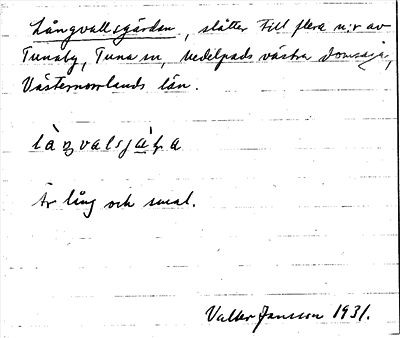 Långvallsgärdan, slåtter till flera n:r av
Tunaby, Tuna sn, Medelpads västra domsaga,
Västernorrlands län.
Är lång och smal.
Valter Jansson 1931.